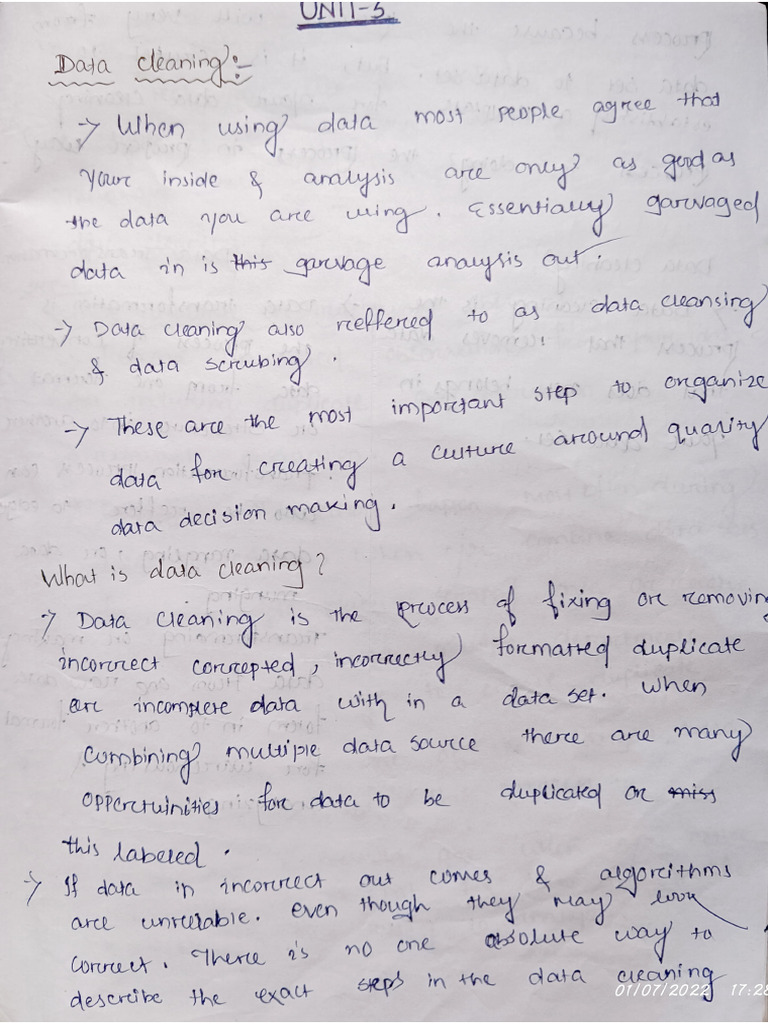 UNIT-5
Data cleaning:-
-> When using data most people agree that
your inside & analysis are only as good as
the data you are using. Essentially garvaged
data in is this garvage analysis out.
-> Data cleaning also reffered to as data cleansing
& data scrubing.
-> These are the most important step to organize
data for creating a culture around quality
data decision making.
What is data cleaning?
-> Data cleaning is the process of fixing or removing
incorrect correpted, incorrectly formatted duplicate
are incomplete data with in a data set. When
combining multiple data source there are many
oppertuinities for data to be duplicated or miss
this labered.
-> If data in incorrect out comes & algorithms
are unreliable. even though they may look
correct. There is no one absolute way to
describe the exact steps in the data cleaning
01/07/2022 17:28